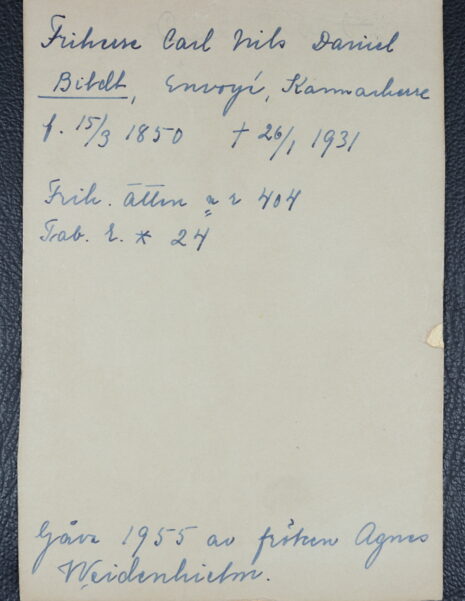 Friherre Carl Nils Daniel
Bildt, Envoyé, Kammarherre
f. 15/3 1850 † 26/1 1931
Frih. ätten nr 404
Tab. * 24
Gåva 1955 av fröken Agnes
Weidenhielm.